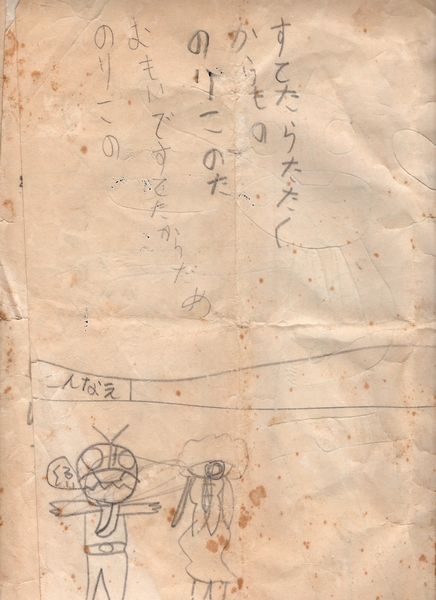 すてたらだたく
からもの
のりこのた
おもいですてたからだめ
のりこの
こんなえ